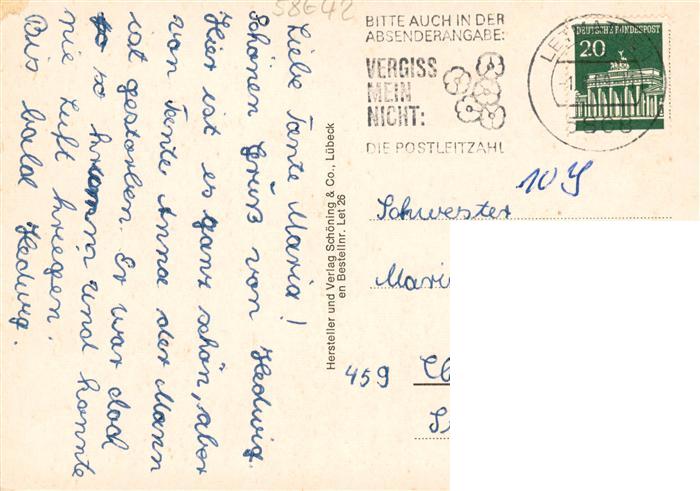 58642
Liebe Tante Maria!
Schönen Gruß von Hedwig.
Hier ist es ganz schön, aber
von Tante Anna der Mann
ist gestorben. Er war doch
so krumm und konnte
nie Luft kriegen.
Bis bald Hedwig.
Hersteller und Verlag Schöning & Co., Lübeck
en Bestellnr. Let 26
BITTE AUCH IN DER
ABSENDERANGABE:
VERGISS
MEIN
NICHT:
DIE POSTLEITZAHL
DEUTSCHE BUNDESPOST
20
Schwester
Mari
459